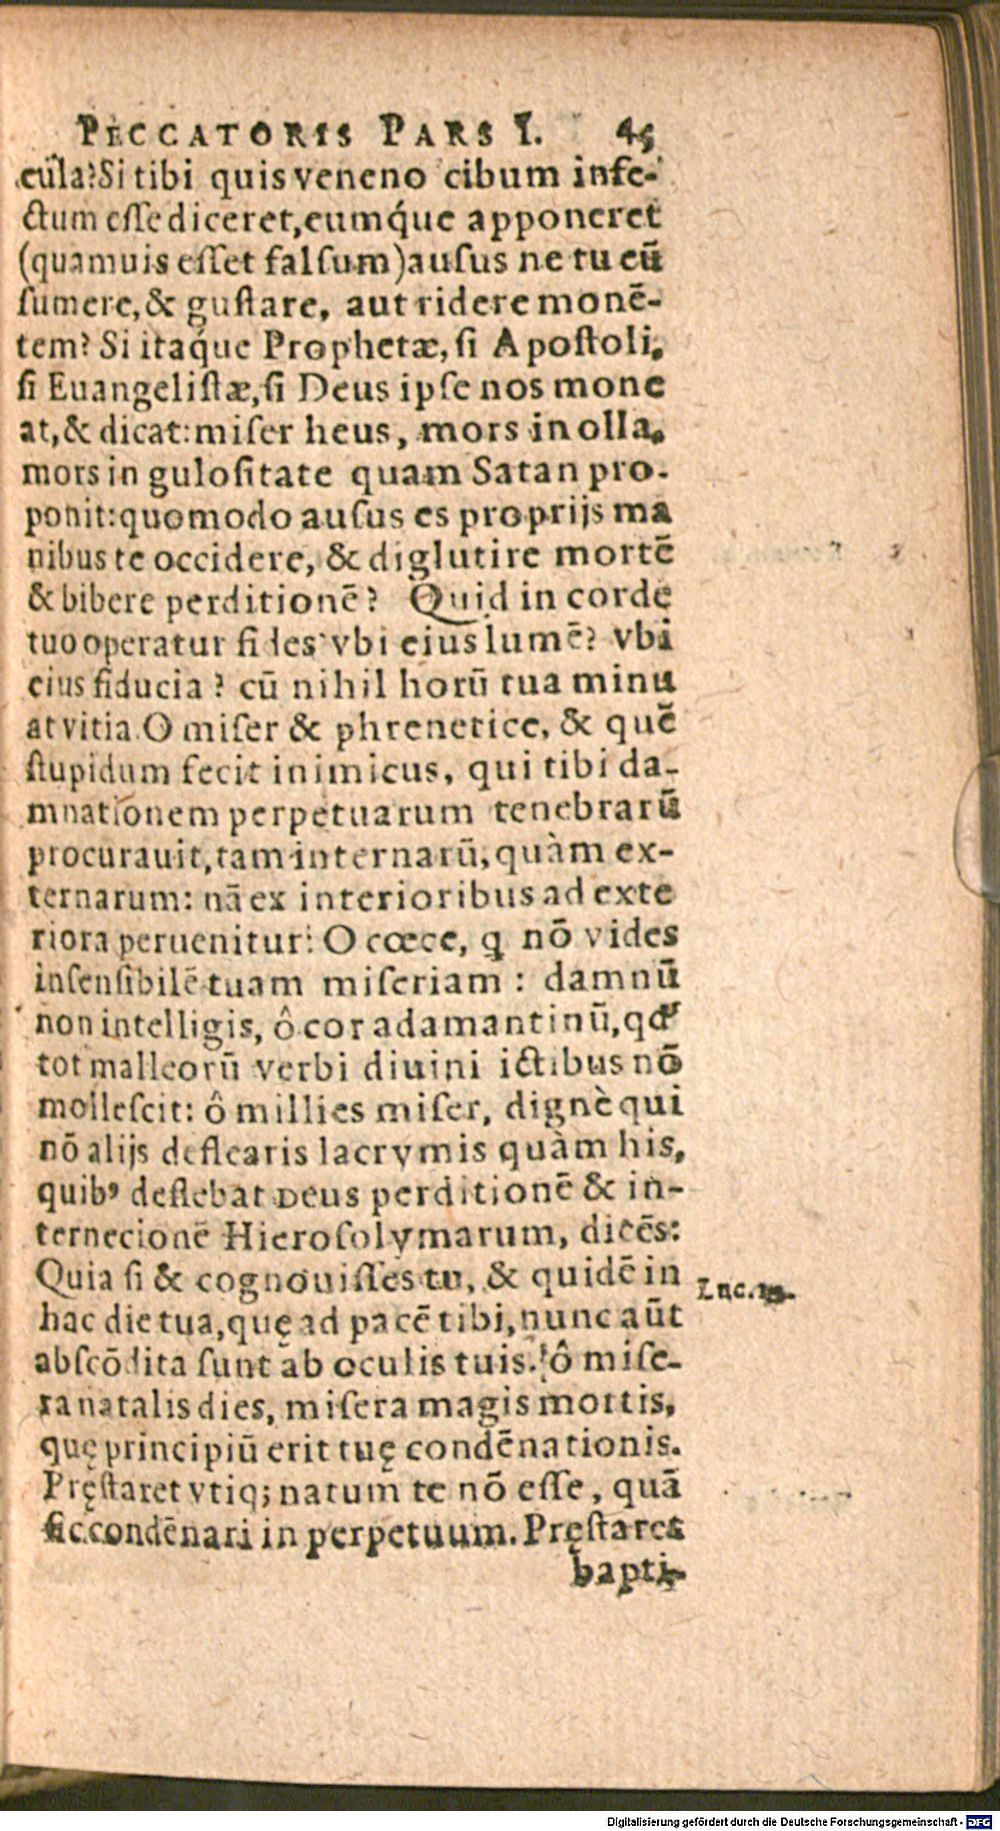 PECCATORIS PARS I. 45
cula? Si tibi quis veneno cibum infe-
ctum esse diceret, eumq́ue apponeret
(quamuis esset falsum) ausus ne tu eũ
sumere, & gustare, aut ridere monẽ-
tem? Si itaq́ue Prophetæ, si Apostoli,
si Euangelistæ, si Deus ipse nos mone
at, & dicat: miser heus, mors in olla,
mors in gulositate quam Satan pro-
ponit: quomodo ausus es proprijs ma
nibus te occidere, & diglutire mortẽ
& bibere perditionẽ? Quid in corde
tuo operatur fides? vbi eius lumẽ? vbi
eius fiducia? cũ nihil horũ tua minu
at vitia. O miser & phrenetice, & quẽ
stupidum fecit inimicus, qui tibi da-
mnationem perpetuarum tenebrarũ
procurauit, tam internarũ, quàm ex-
ternarum: nã ex interioribus ad exte
riora peruenitur: O cœce, q nõ vides
insensibilẽ tuam miseriam: damnũ
non intelligis, ô cor adamantinũ, qđ
tot malleorũ verbi diuini ictibus nõ
mollescit: ô millies miser, dignè qui
nõ alijs deflearis lacrymis quàm his,
quibꝰ deflebat Deus perditionẽ & in-
ternecionẽ Hierosolymarum, dicẽs:
Quia si & cognouisses tu, & quidẽ in
hac die tua, quę ad pacẽ tibi, nunc aũt
abscõdita sunt ab oculis tuis. ô mise-
ra natalis dies, misera magis mortis,
quę principiũ erit tuę condẽnationis.
Pręstaret vtiq; natum te nõ esse, quã
sic condẽnari in perpetuum. Pręstaret
bapti-
Luc. 19.
Digitalisierung gefördert durch die Deutsche Forschungsgemeinschaft - DFG